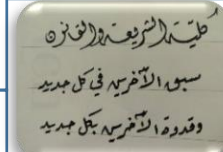 كلية الشريعة والقانون
سبق الآخرين في كل جديد
وقدوة الآخرين بكل جديد